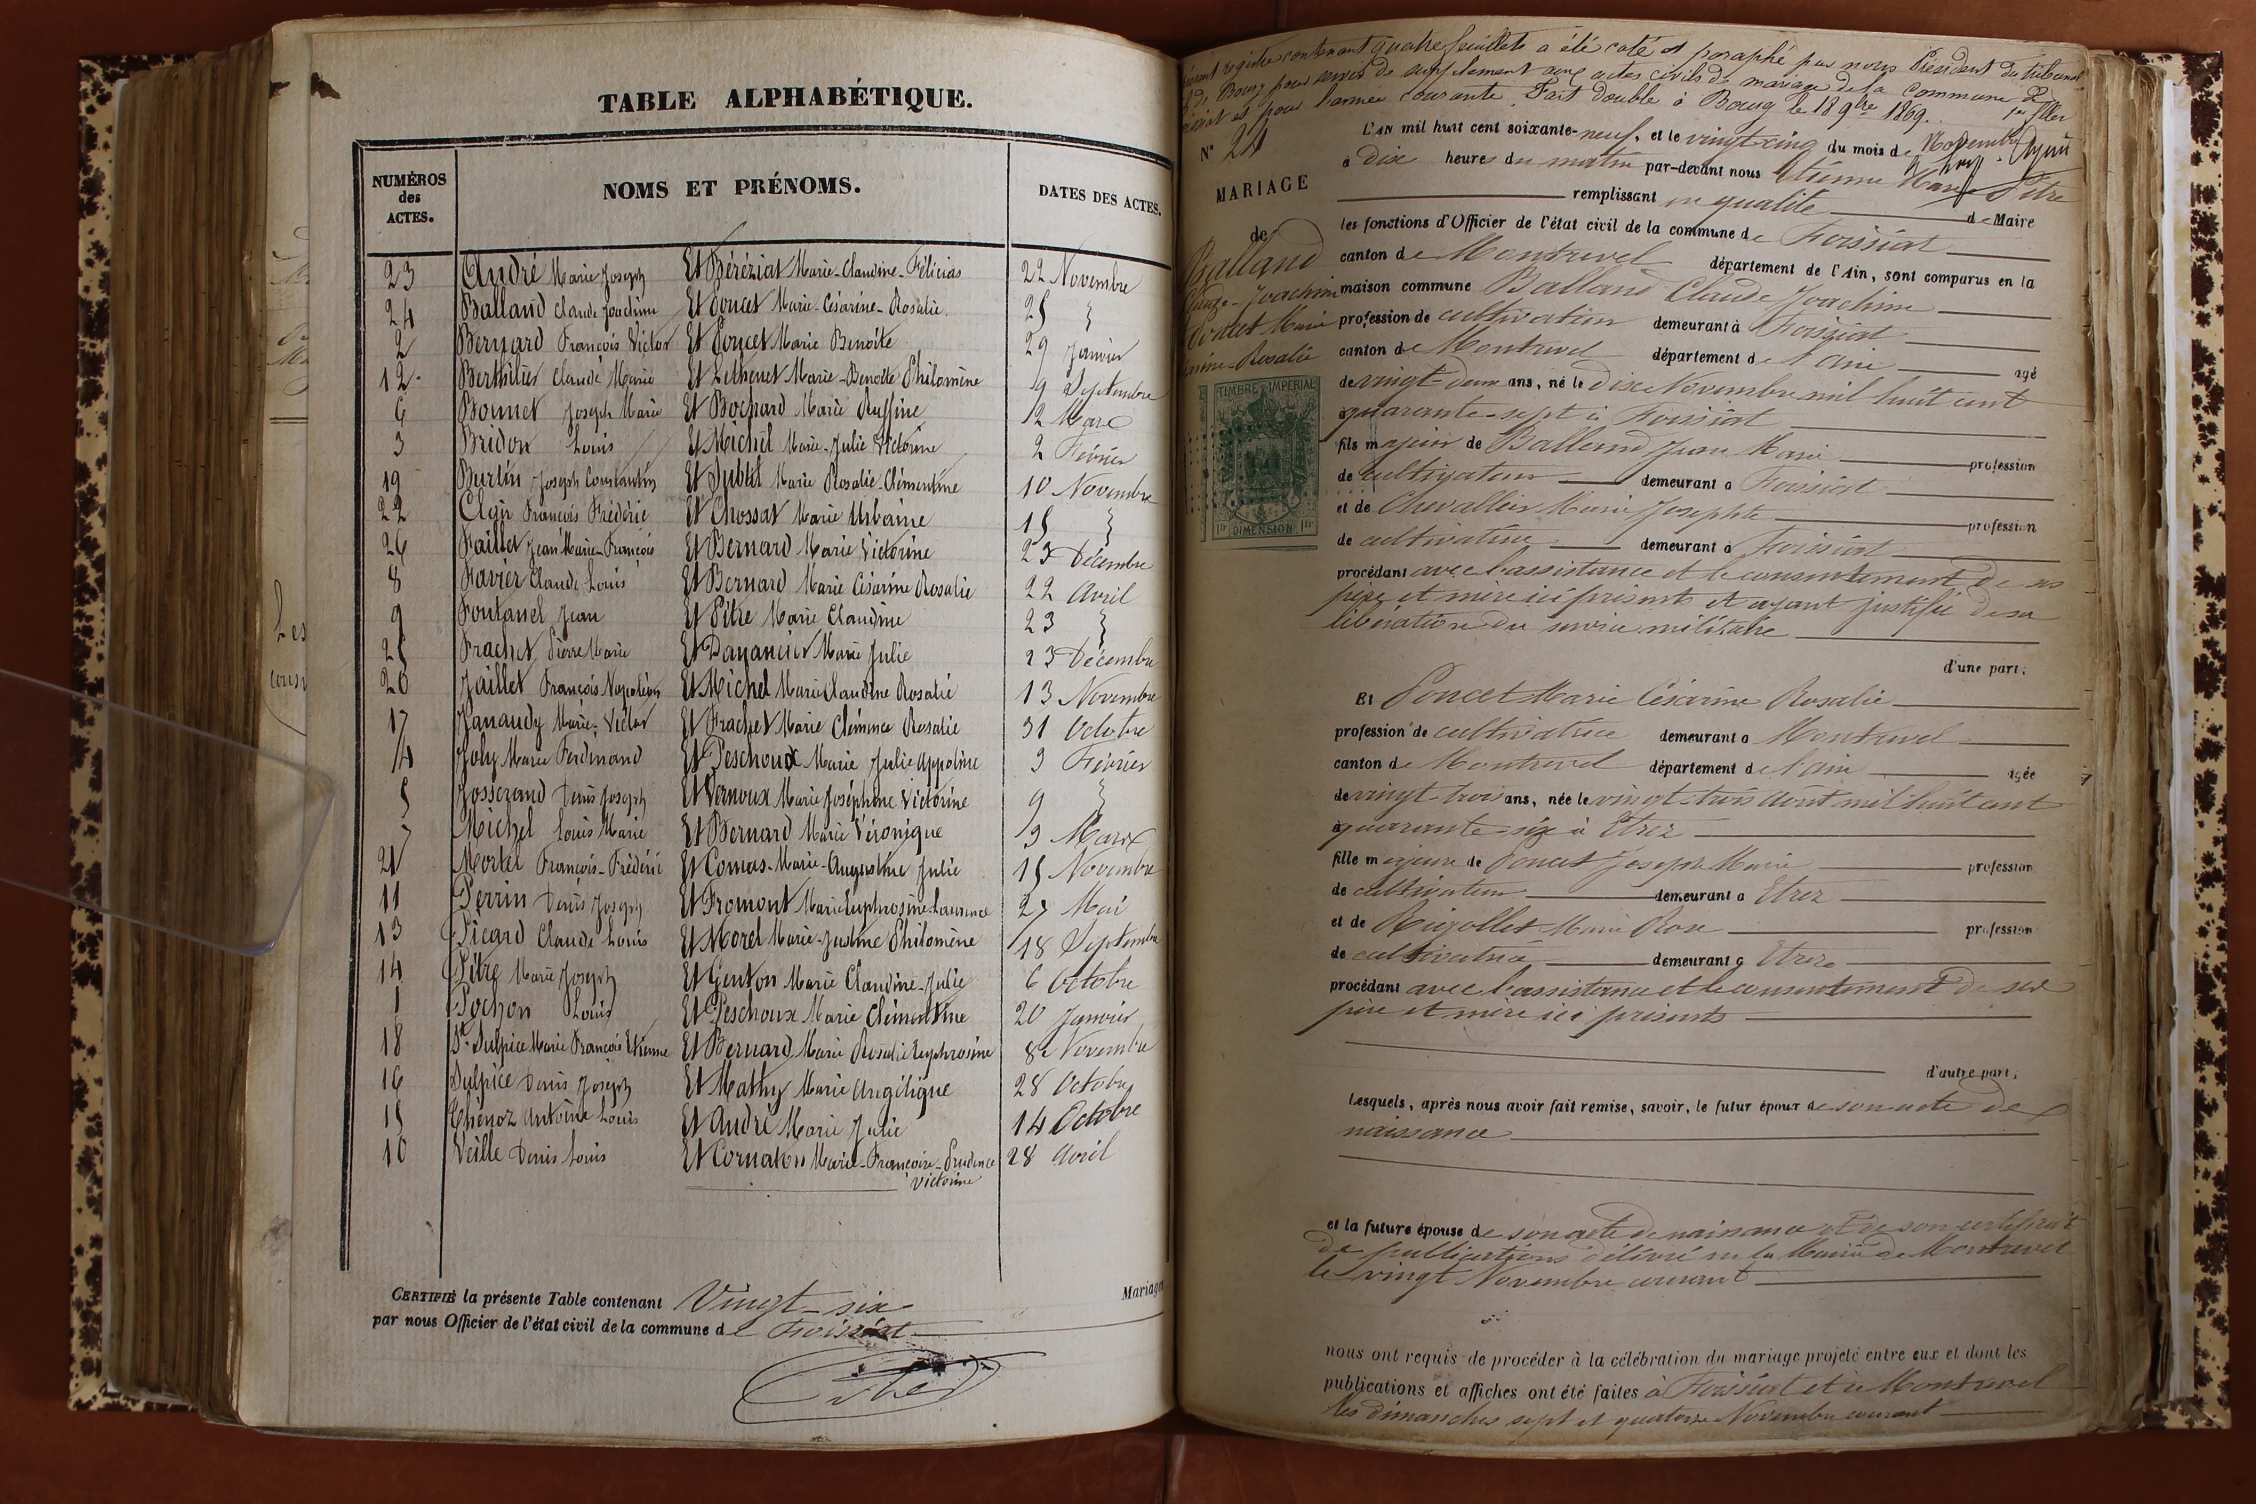 TABLE ALPHABÉTIQUE.
NUMÉROS des ACTES. NOMS ET PRÉNOMS. DATES DES ACTES.
23 André Marie Joseph Et Béréziat Marie-Claudine-Félicias 22 Novembre
24 Balland Claude Joachim Et Poncet Marie-Césarine-Rosalie. 25 }
2 Bernard François Victor Et Poncet Marie Benoîte 29 Janvier
12 Berthilier Claude Marie Et Marie-Benoîte Philomène 9 Septembre
6 Bonnet Joseph Marie Et Bochard Marie Ruffine 12 Mars
3 Bridon Louis Et Michel Marie-Julie Victorine 2 Février
19 Burtin Joseph Constantin Et Marie Rosalie-Clémentine 10 Novembre
22 Clair François Frédéric Et Chossat Marie Urbaine 15 }
26 Faillet Jean Marie-François Et Bernard Marie Victorine 23 Décembre
8 Favier Claude Louis Et Bernard Marie Césarine Rosalie 22 Avril
9 Fontanel Jean Et Pitre Marie Claudine 23 }
25 Frachet Pierre Marie Et Danancier Marie Julie 23 Décembre
20 Jaillet François Napoléon Et Michel Marie Claudine Rosalie 13 Novembre
17 Janaudy Marie-Victor Et Frachet Marie Clémence Rosalie 31 Octobre
4 Joly Marie Ferdinand Et Peschoux Marie Julie Appoline 3 Février
5 Josserand Denis Joseph Et Vernoux Marie Joséphine Victorine 9 }
7 Michel Louis Marie Et Bernard Marie Véronique 3 Mars
21 Mortel François-Frédéric Et Comas-Marie-Augustine Julie 15 Novembre
11 Perrin Denis Joseph Et Fromont Marie Euphrosine-Laurence 27 Mai
13 Picard Claude Louis Et Morel Marie-Justine Philomène 18 Septembre
14 Pitre Marie Joseph Et Genton Marie Claudine-Julie 6 Octobre
1 Pochon Louis Et Peschoux Marie Clémentine 20 Janvier
18 St. Sulpice Marie François Etienne Et Bernard Marie Rosalie Euphrosine 8 Novembre
16 Sulpice Denis Joseph Et Mathy Marie Angélique 28 Octobre
15 Thénoz Antoine Louis Et André Marie Julie 14 Octobre
10 Veille Denis Louis Et Cornaton Marie-Françoise-Prudence 28 Avril
Victorine
CERTIFIÉ la présente Table contenant Vingt-six Mariages
par nous Officier de l'état civil de la commune de Foissiat
registre contenant quatre feuillets a été coté et paraphé par nous Président du tribunal
de Bourg pour servir de supplément aux actes civils de mariage de la commune de
pour l'année courante. Fait double à Bourg le 18 9bre 1869.
N° 24
MARIAGE
de
Balland
Claude-Joachim
Poncet Marie
Rosalie
TIMBRE IMPÉRIAL
DIMENSION
L'AN mil huit cent soixante-neuf, et le vingt-cinq du mois de Novembre
à dix heures du matin par-devant nous Etienne Marie Pitre
remplissant en qualité de Maire
les fonctions d'Officier de l'état civil de la commune de Foissiat
canton de Montrevel département de l'Ain, sont comparus en la
maison commune Balland Claude Joachim
profession de cultivateur demeurant à Foissiat
canton de Montrevel département de l'ain agé
de vingt-deux ans, né le dix Novembre mil huit cent
quarante-sept à Foissiat
fils majeur de Balland Jean Marie profession
de cultivateur demeurant à Foissiat
et de Chevallier Marie Josephte profession
de cultivatrice demeurant à Foissiat
procédant avec l'assistance et le consentement de ses
père et mère ici présents et ayant justifié de sa
libération du service militaire
d'une part;
Et Poncet Marie Césarine Rosalie
profession de cultivatrice demeurant à Montrevel
canton de Montrevel département de l'ain agée
de vingt-trois ans, née le vingt-trois Août mil huit cent
quarante-six à Etrez
fille majeure de Poncet Joseph Marie profession
de cultivateur demeurant à Etrez
et de Rigollet Marie Rose profession
de cultivatrice demeurant à Etrez
procédant avec l'assistance et le consentement de ses
père et mère ici présents
d'autre part;
Lesquels, après nous avoir fait remise, savoir, le futur époux de son acte de
naissance
et la future épouse de son acte de naissance et de son certificat
de publications délivré en la Mairie de Montrevel
le vingt Novembre courant
nous ont requis de procéder à la célébration du mariage projeté entre eux et dont les
publications et affiches ont été faites à Foissiat et à Montrevel
les dimanches sept et quatorze Novembre courant